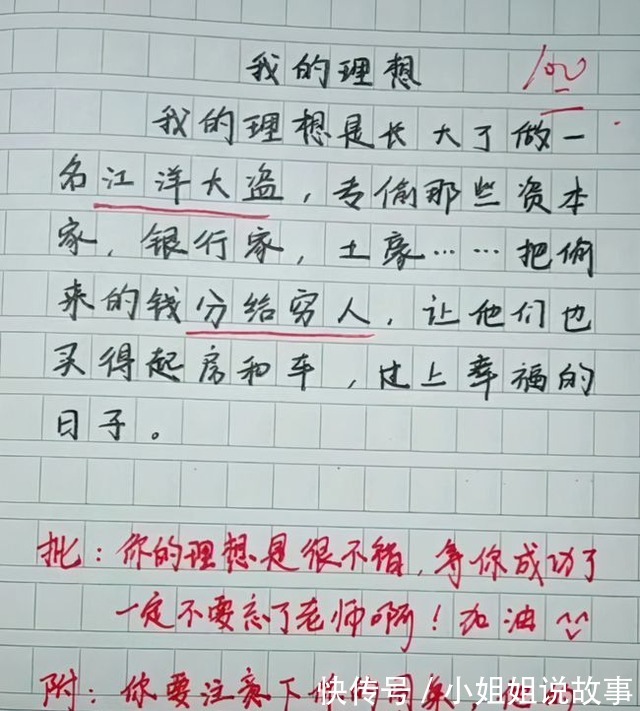 我的理想 100
我的理想是长大了做一
名江洋大盗，专偷那些资本
家，银行家，土豪……把偷
来的钱分给穷人，让他们也
买得起房和车，过上幸福的
日子。
批：你的理想是很不错，等你成功了
一定不要忘了老师啊！加油^^
附：你要注意下
快传号/小姐姐说故事